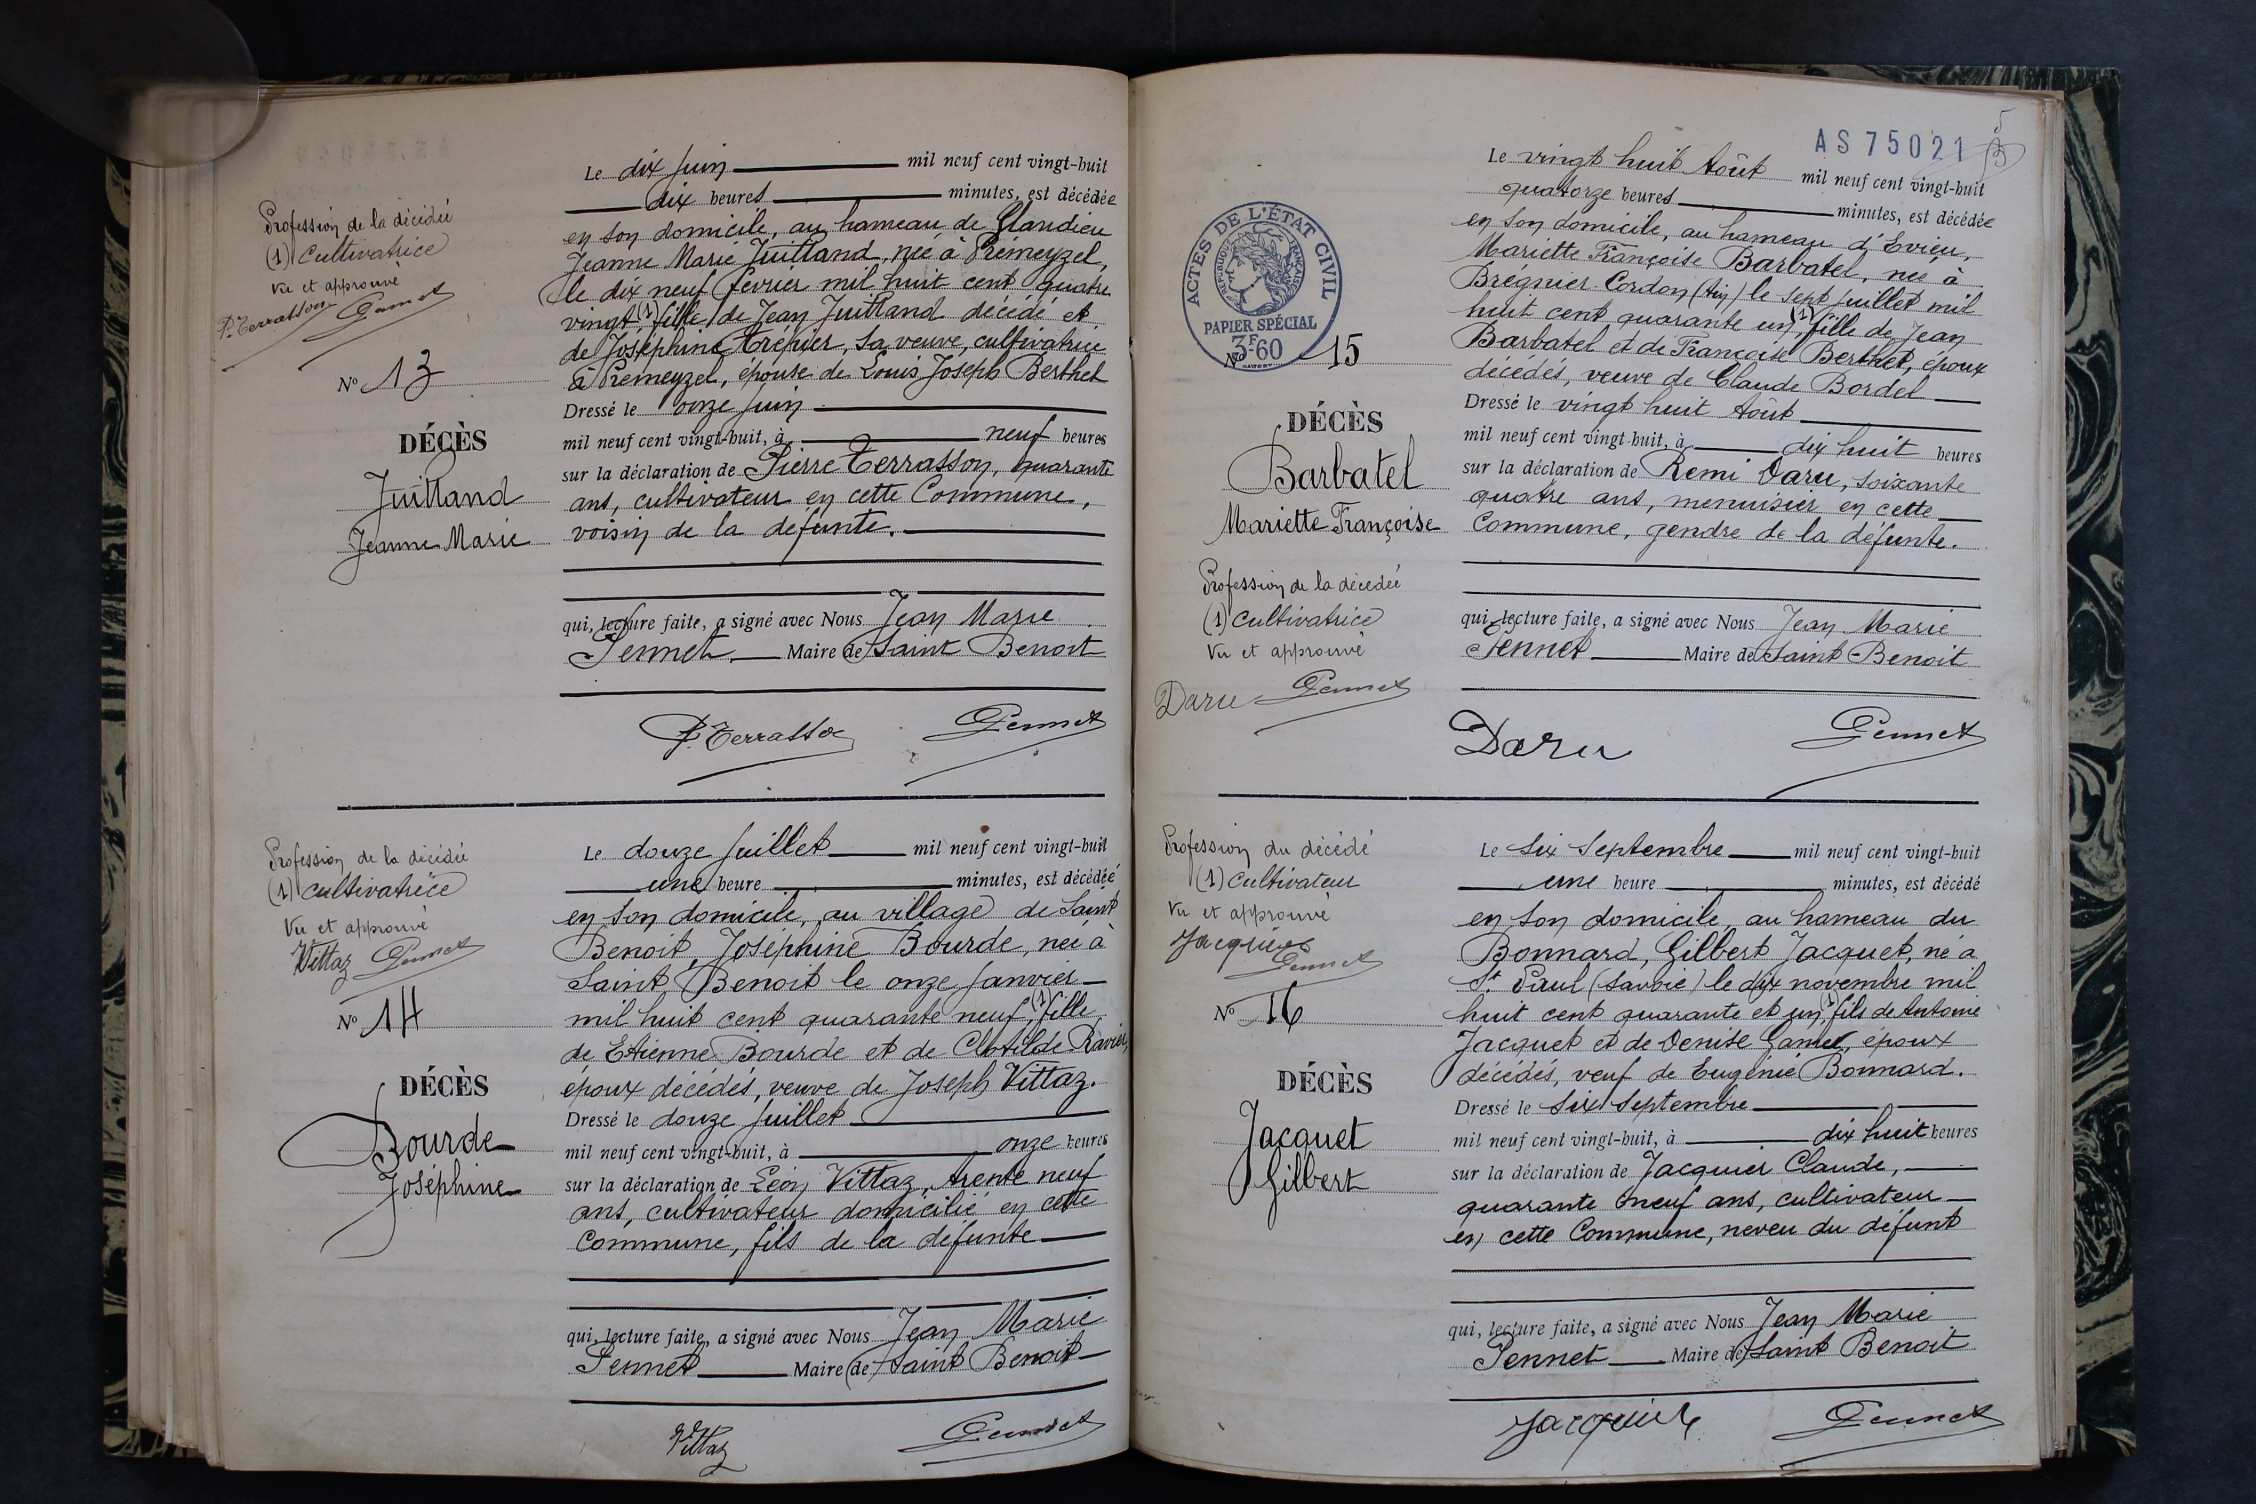 Le dix juin mil neuf cent vingt-huit
dix heures minutes, est décédée
en son domicile, au hameau de Glandieu
Jeanne Marie Juilland, née à Prémeyzel,
le dix neuf février mil huit cent quatre
vingt, (1) fille de Jean Juilland décédé et
de Joséphine Trépier, sa veuve, cultivatrice
à Prémeyzel, épouse de Louis Joseph Berthet
Dressé le onze juin
mil neuf cent vingt-huit, à neuf heures
sur la déclaration de Pierre Terrasson, quarante
ans, cultivateur en cette Commune,
voisin de la défunte.
qui, lecture faite, a signé avec Nous Jean Marie
Pennet Maire de Saint Benoit
P. Terrasson Pennet
Profession de la décédée
(1) Cultivatrice
Vu et approuvé
P. Terrasson Pennet
No 13
DÉCÈS
Juilland
Jeanne Marie
Profession de la décédée
(1) cultivatrice
Vu et approuvé
Vittaz Pennet
No 14
DÉCÈS
Bourde
Joséphine
Le douze juillet mil neuf cent vingt-huit
une heure minutes, est décédée
en son domicile, au village de Saint
Benoit, Joséphine Bourde, née à
Saint Benoit le onze janvier
mil huit cent quarante neuf, (1) fille
de Etienne Bourde et de Clotilde Ravier,
époux décédés, veuve de Joseph Vittaz.
Dressé le douze juillet
mil neuf cent vingt-huit, à onze heures
sur la déclaration de Léon Vittaz, trente neuf
ans, cultivateur domicilié en cette
Commune, fils de la défunte
qui, lecture faite, a signé avec Nous Jean Marie
Pennet Maire de Saint Benoit
Vittaz Pennet
AS 75021
5
ACTES DE L'ÉTAT CIVIL
RÉPUBLIQUE FRANÇAISE
PAPIER SPÉCIAL
3F60
No 15
DÉCÈS
Barbatel
Mariette Françoise
Profession de la décédée
(1) cultivatrice
Vu et approuvé
Daru Pennet
Le vingt huit Août mil neuf cent vingt-huit
quatorze heures minutes, est décédée
en son domicile, au hameau d'Evieu,
Mariette Françoise Barbatel, née à
Brégnier-Cordon (Ain) le sept juillet mil
huit cent quarante un, (1) fille de Jean
Barbatel et de Françoise Berthet, époux
décédés, veuve de Claude Bordel
Dressé le vingt huit Août
mil neuf cent vingt-huit, à dix huit heures
sur la déclaration de Remi Daru, soixante
quatre ans, menuisier en cette
Commune, gendre de la défunte.
qui, lecture faite, a signé avec Nous Jean Marie
Pennet Maire de Saint-Benoit
Daru Pennet
Profession du décédé
(1) Cultivateur
Vu et approuvé
Jacquier
Pennet
No 16
DÉCÈS
Jacquet
Gilbert
Le six Septembre mil neuf cent vingt-huit
une heure minutes, est décédé
en son domicile, au hameau du
Bonnard, Gilbert Jacquet, né à
St Paul (Savoie) le dix novembre mil
huit cent quarante et un, (1) fils de Antoine
Jacquet et de Denise, époux
décédés, veuf de Eugénie Bonnard.
Dressé le six Septembre
mil neuf cent vingt-huit, à dix huit heures
sur la déclaration de Jacquier Claude,
quarante neuf ans, cultivateur
en cette Commune, neveu du défunt
qui, lecture faite, a signé avec Nous Jean Marie
Pennet Maire de Saint Benoit
Jacquier Pennet